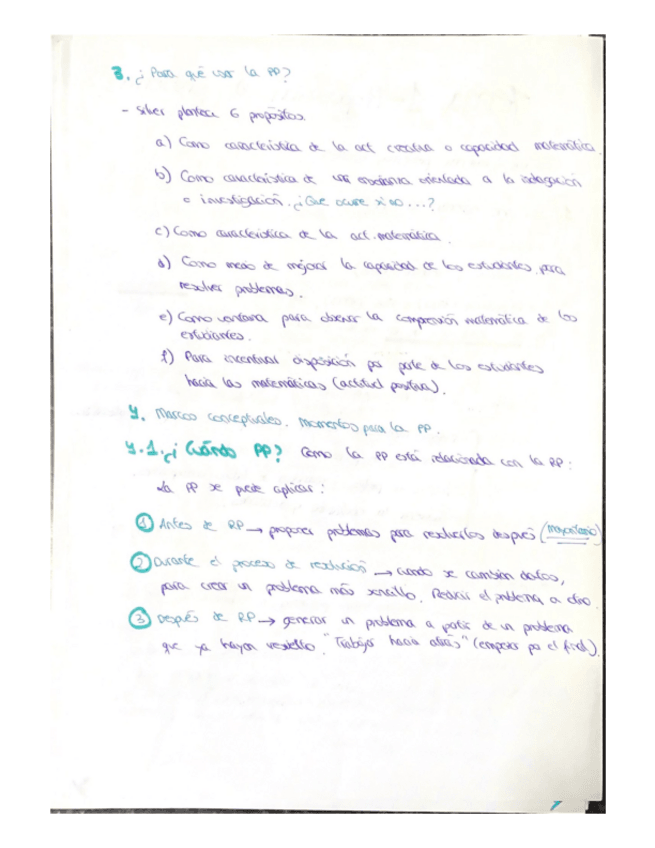 3. ¿Para qué usar la PP?
- Silver plantea 6 propósitos.
a) Como característica de la act creativa o capacidad matemática.
b) Como característica de una enseñanza orientada a la indagación
o investigación. ¿Que ocurre si no ...?
c) Como característica de la act. matemática.
d) Como medio de mejorar la capacidad de los estudiantes para
resolver problemas.
e) Como ventana para observar la comprensión matemática de los
estudiantes.
f) Para incentivar disposición por parte de los estudiantes
hacia las matemáticas (actitud positiva).
4. Marcos conceptuales. Momentos para la PP.
4.1. ¿Cuándo PP? Como la PP está relacionada con la RP:
La PP se puede aplicar:
① Antes de RP → proponer problemas para resolverlos después (mayoritario)
② Durante el proceso de resolución → cuando se cambian datos,
para crear un problema más sencillo. Reducir el problema a otro.
③ Después de RP → generar un problema a partir de un problema
que ya hayan resuelto. "Trabajar hacia atrás" (empezar por el final).